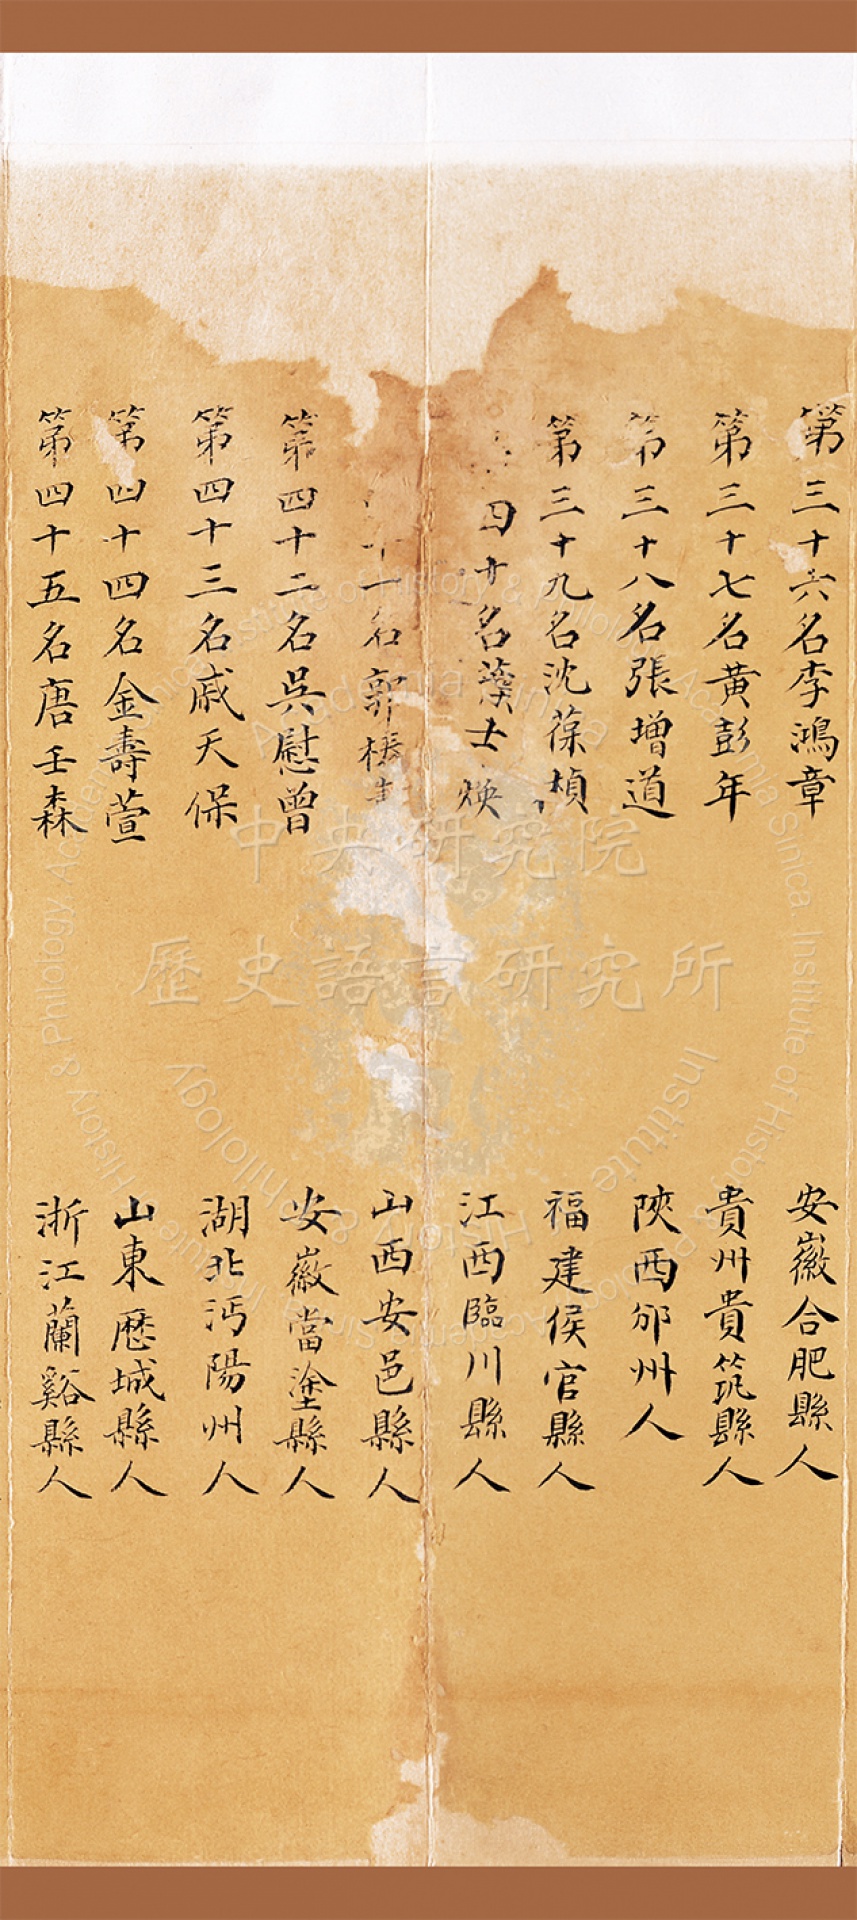 第三十六名李鴻章 安徽合肥縣人
第三十七名黃彭年 貴州貴筑縣人
第三十八名張增道 陝西邠州人
第三十九名沈葆楨 福建侯官縣人
四十名 士煥 江西臨川縣人
十一名郭 山西安邑縣人
第四十二名吳慰曾 安徽當塗縣人
第四十三名戚天保 湖北沔陽州人
第四十四名金壽萱 山東歷城縣人
第四十五名唐壬森 浙江蘭谿縣人
中央研究院
歷史語言研究所
Academia Sinica. Institute of History & Philology